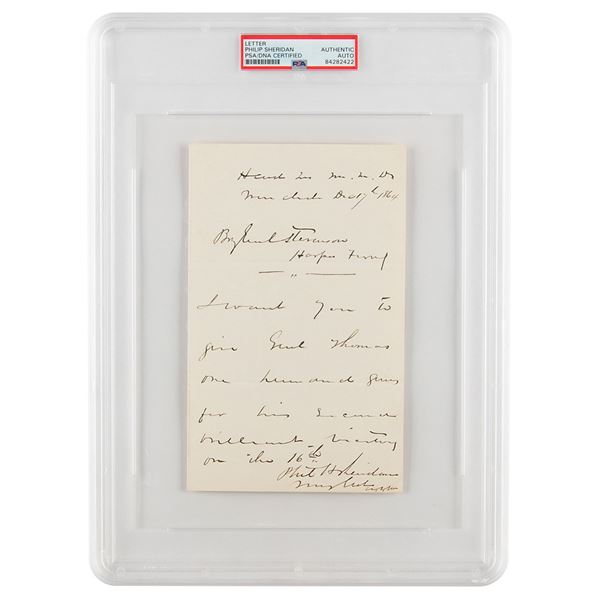 LETTER
PHILIP SHERIDAN
PSA/DNA CERTIFIED
AUTHENTIC
AUTO
84282422
PSA
Head
Dec 17th 1864
Brig Genl Stevenson
Harpers Ferry
I want you to
give Genl Thomas
one hundred guns
for his second
brilliant victory
on the 16th
Phil H Sheridan
Maj Genl